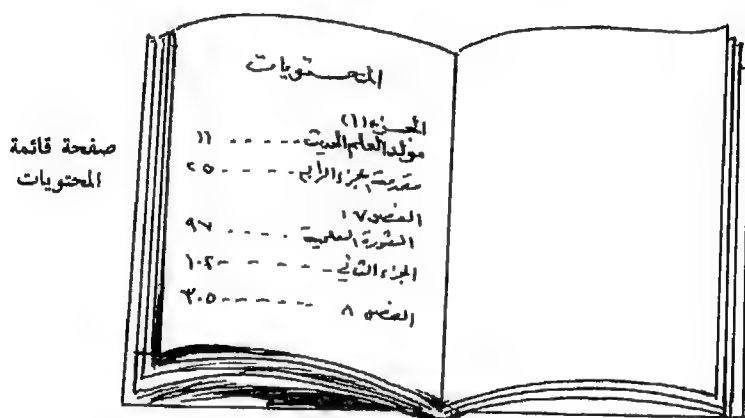 صفحة قائمة
المحتويات
المحتويات
الجزء (١)
مولد العلم الحديث ----- ١١
مقدمة الجزء الرابع ----- ٢٥
الفصل ٧
الثورة العلمية ----- ٩٧
الجزء الثاني ------- ١٠٤
الفصل ٨ ------ ٣٠٥